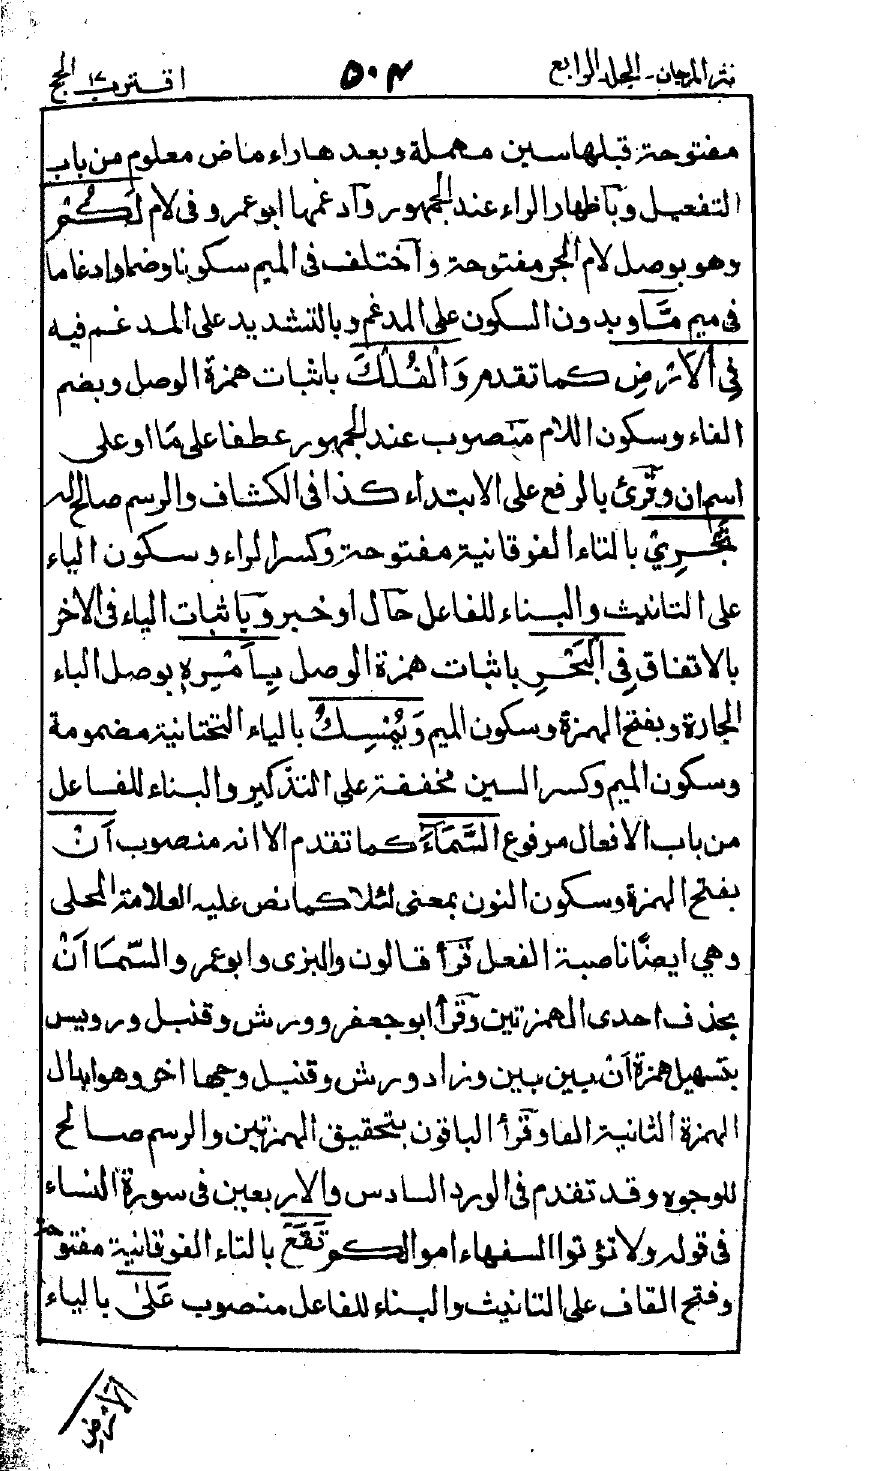 نثر المرجان - المجلد الرابع
۵۰۴
اقترب ۱۷ الحج
مفتوحة قبلها سين مهملة وبعدها راء ماض معلوم من باب
التفعيل وباظهار الراء عند الجمهور وآدغمها ابو عمرو فى لام لَكُمْ
وهو بوصل لام الجر مفتوحة وآختلف فى الميم سكونا وضما وادغاما
فى ميم مَّا وبدون السكون على المدغم وبالتشديد على المدغم فيه
فِي الْاَرْضِ كما تقدم وَالْفُلْكَ باثبات همزة الوصل وبضم
الفاء وسكون اللام منصوب عند الجمهور عطفا على مَا او على
اسم ان وقرئ بالرفع على الابتداء كذا فى الكشاف والرسم صالح له
تَجْرِيْ بالتاء الفوقانية مفتوحة وكسر الراء وسكون الياء
على التانيث والبناء للفاعل حال او خبر وباثبات الياء فى الآخر
بالاتفاق فِي الْبَحْرِ باثبات همزة الوصل بِاَمْرِهٖ بوصل الباء
الجارة وبفتح الهمزة وسكون الميم وَيُمْسِكُ بالياء التحتانية مضمومة
وسكون الميم وكسر السين مخففة على التذكير والبناء للفاعل
من باب الافعال مرفوع السَّمَآءَ كما تقدم الا انه منصوب اَنْ
بفتح الهمزة وسكون النون بمعنى لئلا كما نص عليه العلامة المحلى
وهي ايضًا ناصبة الفعل قرأ قالون والبزى وابو عمر والسَّمَا اَنْ
بحذف احدى الهمزتين وقرأ ابو جعفر وورش وقنبل ورويس
بتسهيل همزة اَنْ بين بين وزاد ورش وقنبل وجها اخر وهو ابدال
الهمزة الثانية الفا وقرأ الباقون بتحقيق الهمزتين والرسم صالح
للوجوه وقد تقدم فى الورد السادس والاربعين فى سورة النساء
فى قوله ولا تؤتوا السفهاء اموالكم تَقَعَ بالتاء الفوقانية مفتوحة
وفتح القاف على التانيث والبناء للفاعل منصوب عَلَى بالياء
الْاَرْضِ